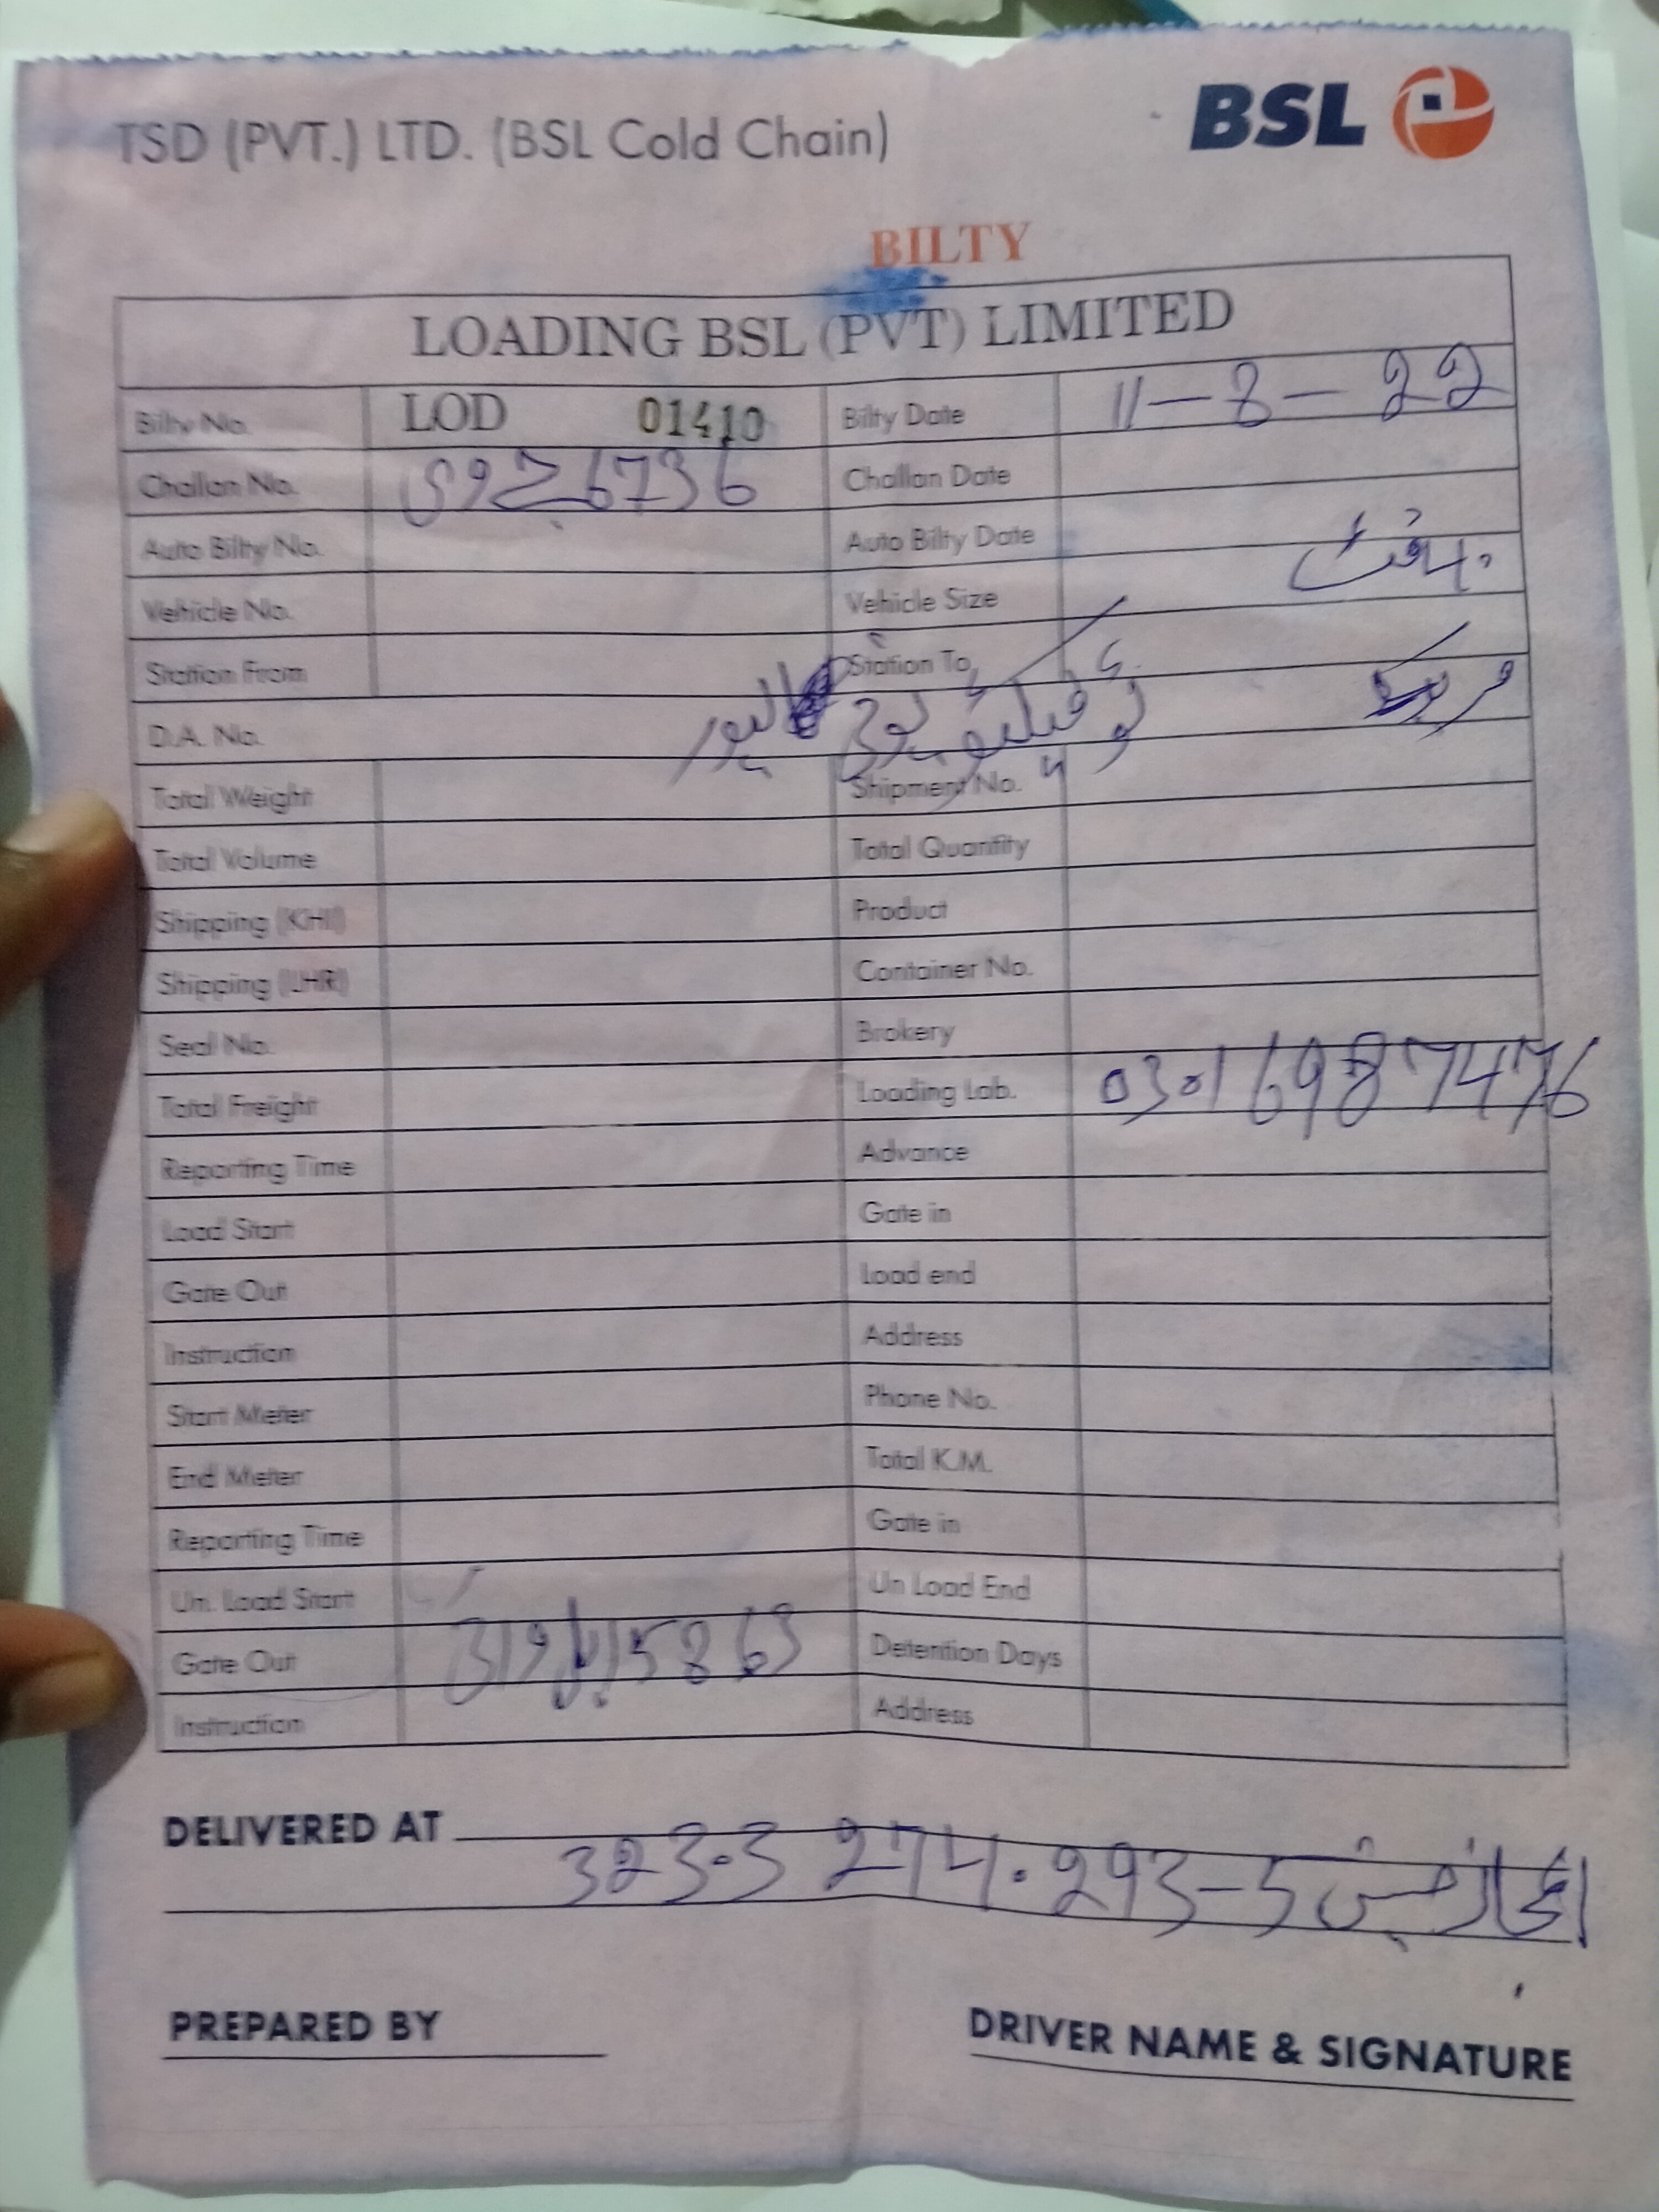 BSL
TSD (PVT.) LTD. (BSL Cold Chain)
BILTY
LOADING BSL (PVT) LIMITED
Bilty No. LOD 01410 Bilty Date 11-8-22
Challan No. Challan Date
Auto Bilty No. Auto Bilty Date
Vehicle No. Vehicle Size
Station From Station To
D.A. No.
Total Weight Shipment No.
Total Volume Total Quantity
Shipping (KHI) Product
Shipping (LHR) Container No.
Seal No. Brokery
Total Freight Loading Lab. 03016987476
Reporting Time Advance
Load Start Gate in
Gate Out Load end
Instruction Address
Start Meter Phone No.
End Meter Total K.M.
Reporting Time Gate in
Un. Load Start Un Load End
Gate Out Detention Days
Instruction Address
DELIVERED AT
PREPARED BY
DRIVER NAME & SIGNATURE